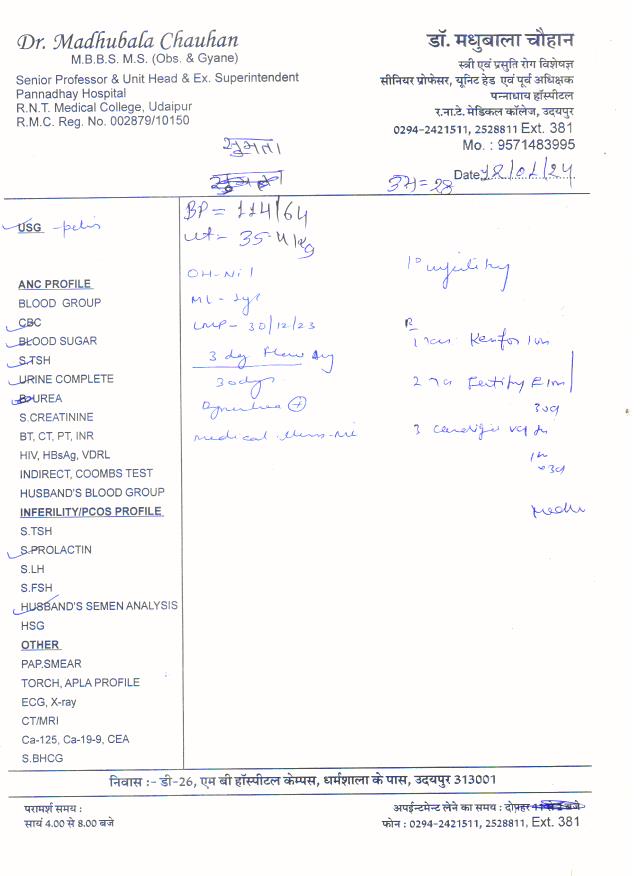 Dr. Madhubala Chauhan
M.B.B.S. M.S. (Obs. & Gyane)
Senior Professor & Unit Head & Ex. Superintendent
Pannadhay Hospital
R.N.T. Medical College, Udaipur
R.M.C. Reg. No. 002879/10150
डॉ. मधुबाला चौहान
स्त्री एवं प्रसुति रोग विशेषज्ञ
सीनियर प्रोफेसर, यूनिट हेड एवं पूर्व अधिक्षक
पन्नाधाय हॉस्पीटल
र.ना.टे. मेडिकल कॉलेज, उदयपुर
0294-2421511, 2528811 Ext. 381
Mo. : 9571483995
उम्र = 28
Date
BP = 114/64
USG - pelvis
wt = 35.4 kg
OH-Nil
ANC PROFILE
BLOOD GROUP
CBC
LMP - 30/12/23
BLOOD SUGAR
S.TSH
3 day flow
URINE COMPLETE
30 days
B.UREA
S.CREATININE
BT, CT, PT, INR
HIV, HBsAg, VDRL
INDIRECT, COOMBS TEST
HUSBAND'S BLOOD GROUP
INFERILITY/PCOS PROFILE
S.TSH
S.PROLACTIN
S.LH
S.FSH
HUSBAND'S SEMEN ANALYSIS
HSG
OTHER
PAP.SMEAR
TORCH, APLA PROFILE
ECG, X-ray
CT/MRI
Ca-125, Ca-19-9, CEA
S.BHCG
निवास :- डी-26, एम बी हॉस्पीटल केम्पस, धर्मशाला के पास, उदयपुर 313001
परामर्श समय :
सायं 4.00 से 8.00 बजे
अपईन्टमेन्ट लेने का समय : दोपहर
फोन : 0294-2421511, 2528811, Ext. 381